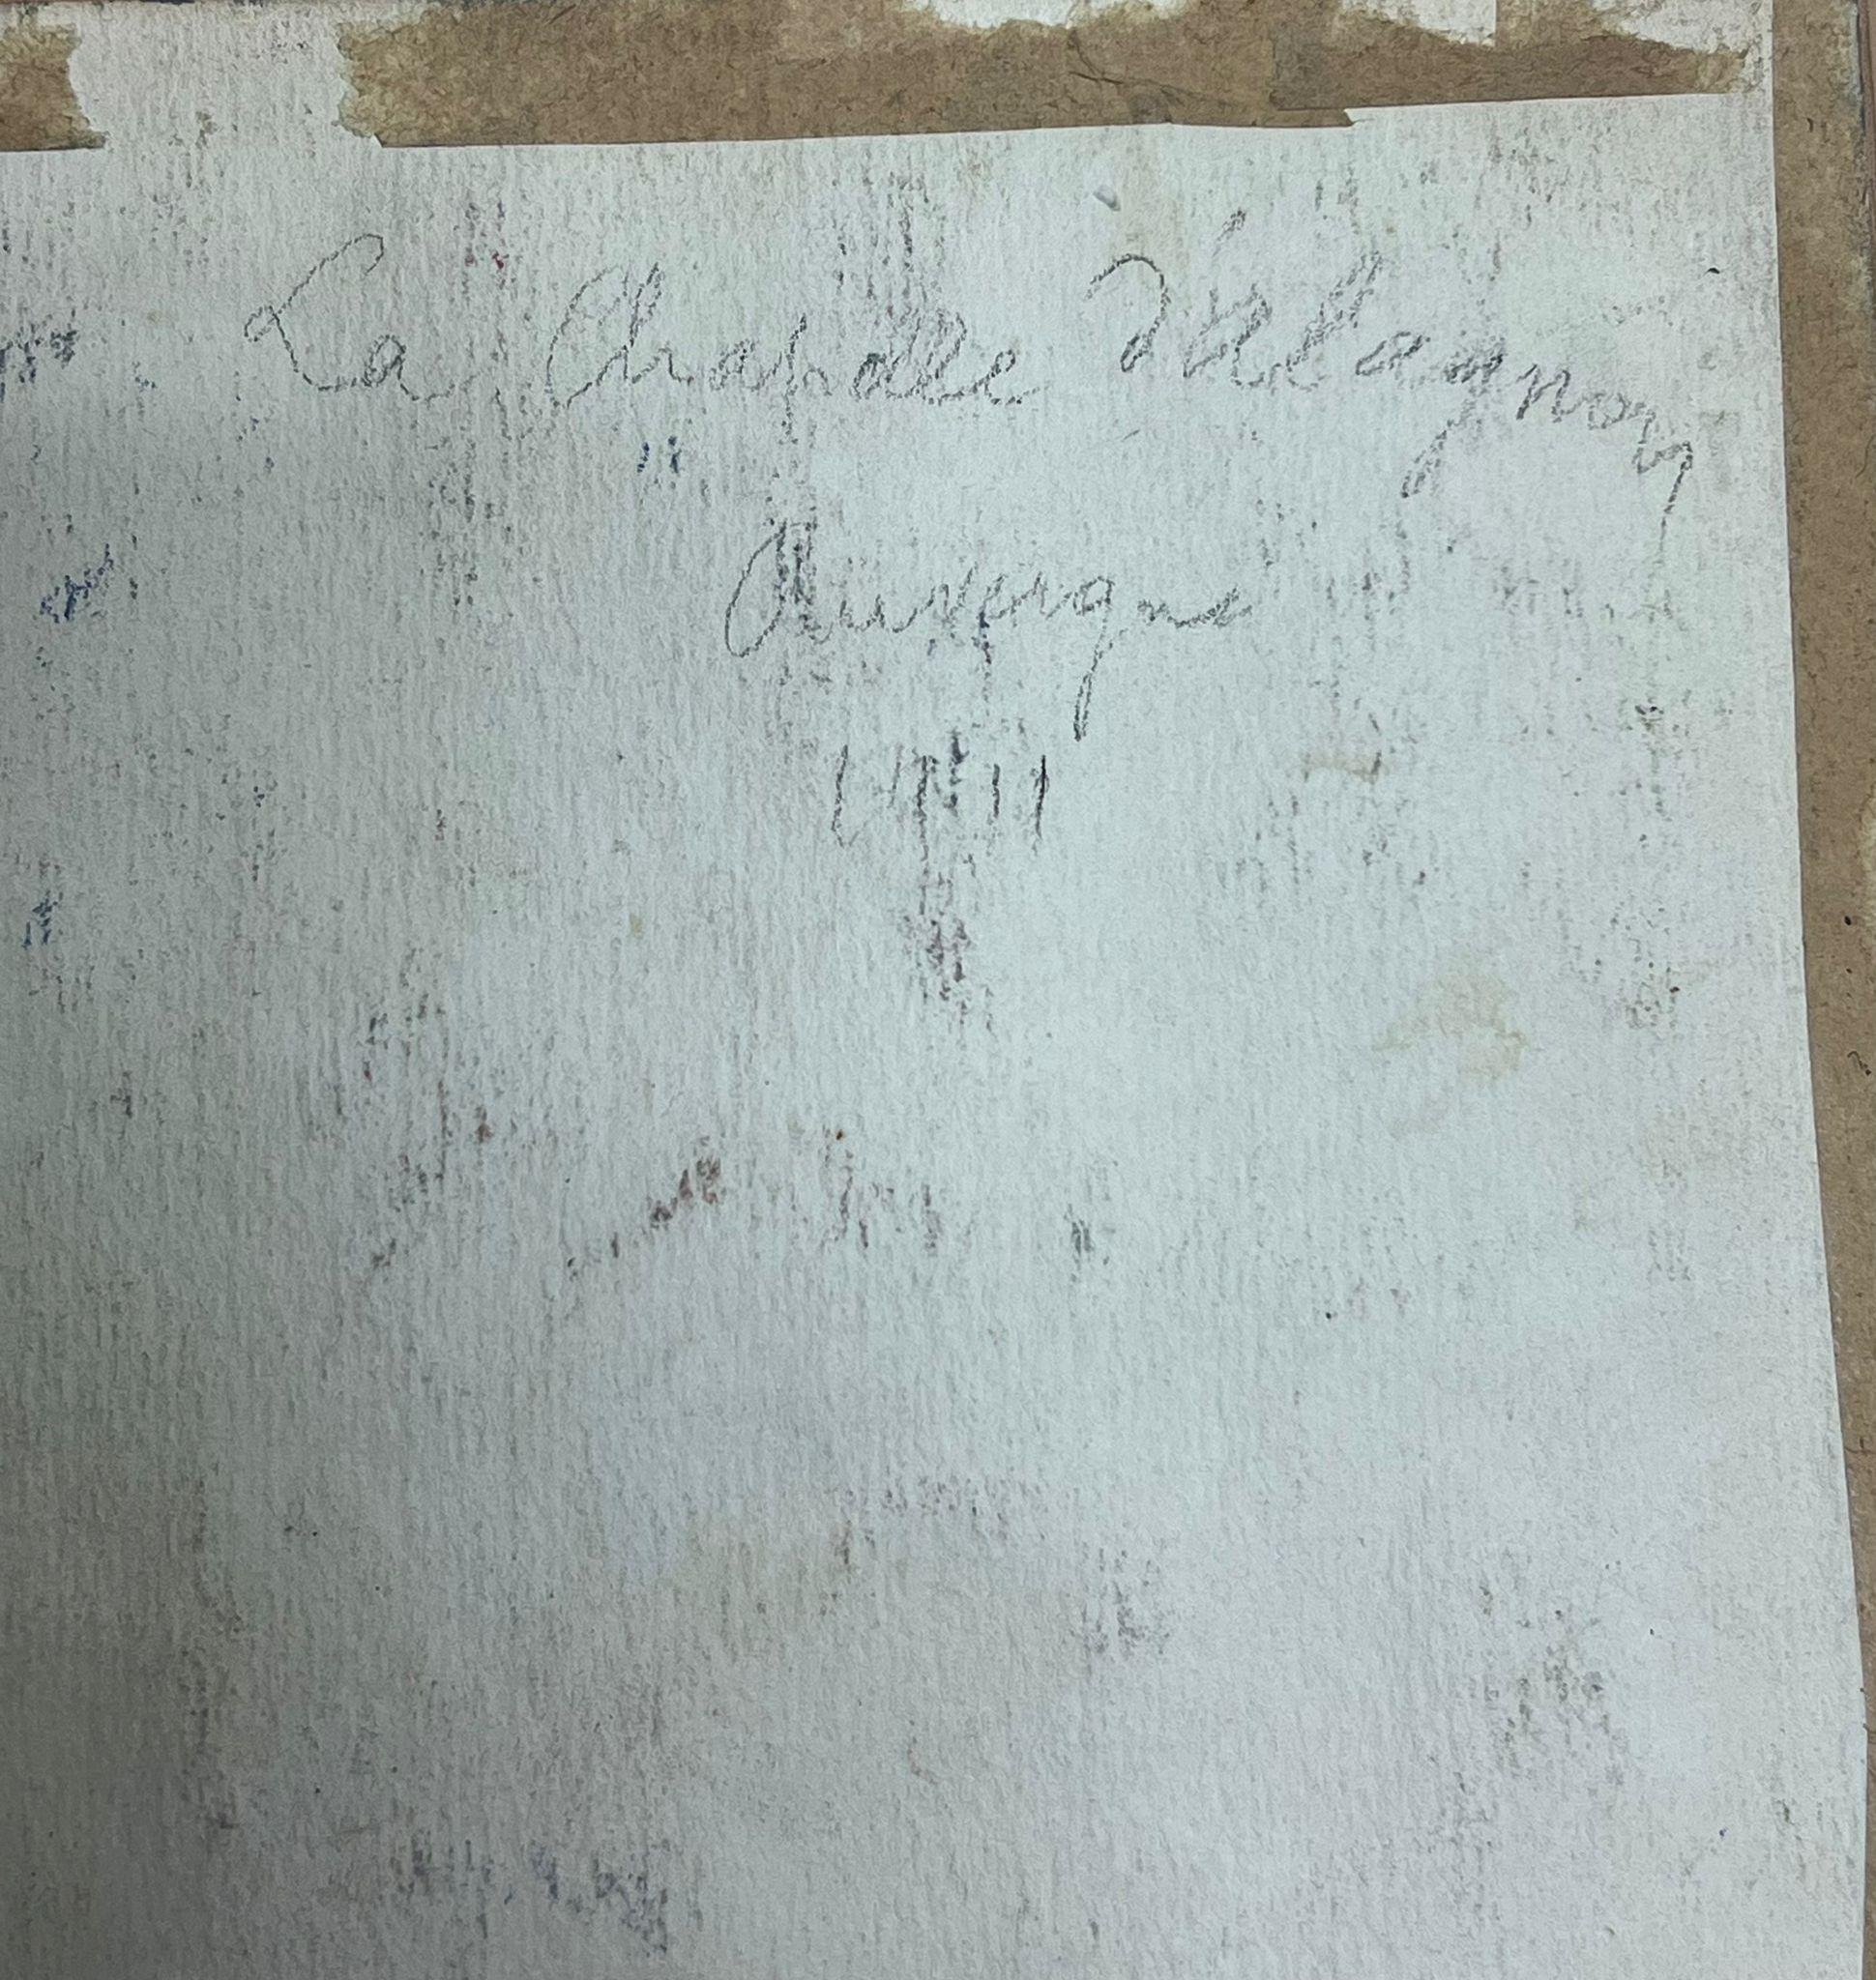 La Chapelle d'Alagnon
Auvergne